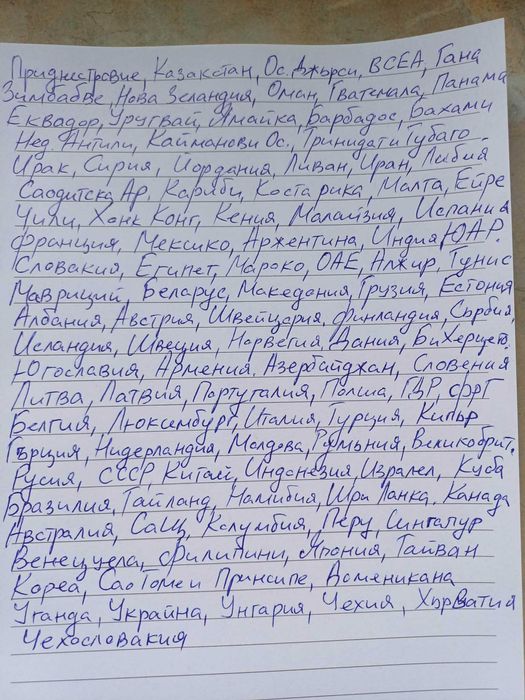 Приднестровие, Казакстан, Ос. Джърси, ВСЕА, Гана
Зимбабве, Нова Зеландия, Оман, Гватемала, Панама
Еквадор, Уругвай, Ямайка, Барбадос, Бахами
Нед. Антили, Кайманови Ос., Тринидат и Тубаго
Ирак, Сирия, Йордания, Ливан, Иран, Либия
Саодитска Ар. Кариби, Коста рика, Малта, Ейре
Чили, Хонк Конг, Кения, Малайзия, Испания
Франция, Мексико, Аржентина, Индия, ЮАР.
Словакия, Египет, Мароко, ОАЕ, Алжир, Тунис
Мавриций, Беларус, Македония, Грузия, Естония
Албания, Австрия, Швейцария, Финландия, Сърбия,
Исландия, Швеция, Норвегия, Дания, БиХерцего.
Югославия, Армения, Азербайджан, Словения
Литва, Латвия, Португалия, Полша, ГДР, ФРГ
Белгия, Люксембург, Италия, Турция, Кипър
Гърция, Нидерландия, Молдова, Румъния, Великобрит.
Русия, СССР, Китай, Индонезия, Израел, Куба
Бразилия, Тайланд, Намибия, Шри Ланка, Канада
Австралия, Сащ, Колумбия, Перу, Сингапур
Венецуела, Филипини, Япония, Тайван
Кореа, Сао Томе и Принсипе, Доменикана
Уганда, Украйна, Унгария, Чехия, Хърватия
Чехословакия